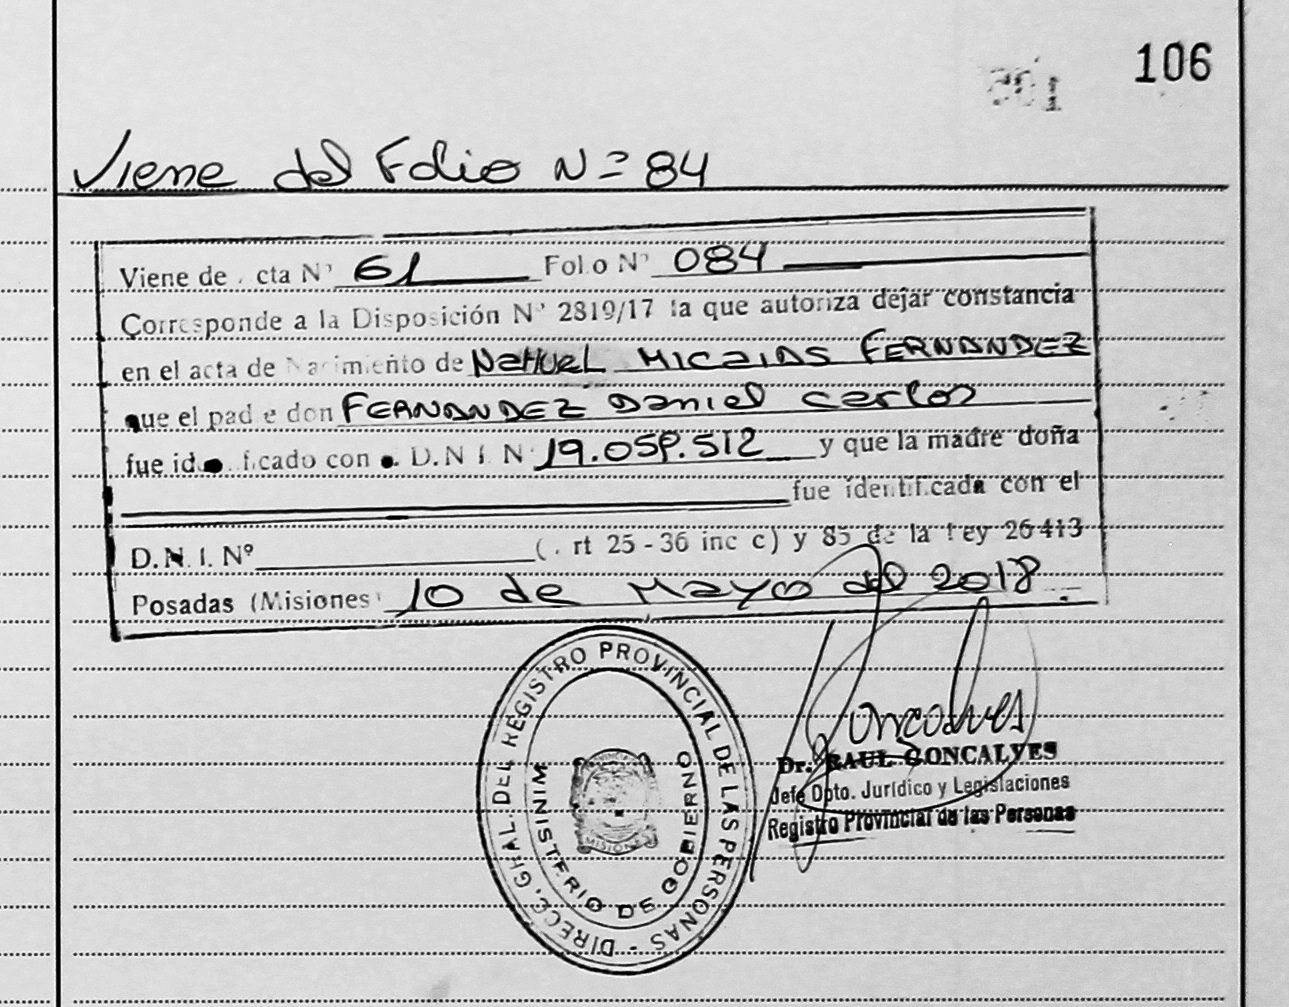 106
Viene del Folio N= 84
Viene de . cta N° 61 Fol.o N° 084
Corresponde a la Disposición N° 2819/17 la que autoriza dejar constancia
en el acta de Nacimiento de Nahuel Micaias FERNANDEZ
que el pad e don FERNANDEZ Daniel Carlos
fue id ficado con D.N I N° 19.059.512 y que la madre doña
fue identificada con el
D.N.I. Nº ( . rt 25 - 36 inc c) y 85 de la Ley 26413
Posadas (Misiones) 10 de Mayo del 2018.
DIREC. GRAL. DEL REGISTRO PROVINCIAL DE LAS PERSONAS -
MINISTERIO DE GOBIERNO
MISIONES
Goncalves
Dr. RAUL GONCALVES
Jefe Dpto. Jurídico y Legislaciones
Registro Provincial de las Personas